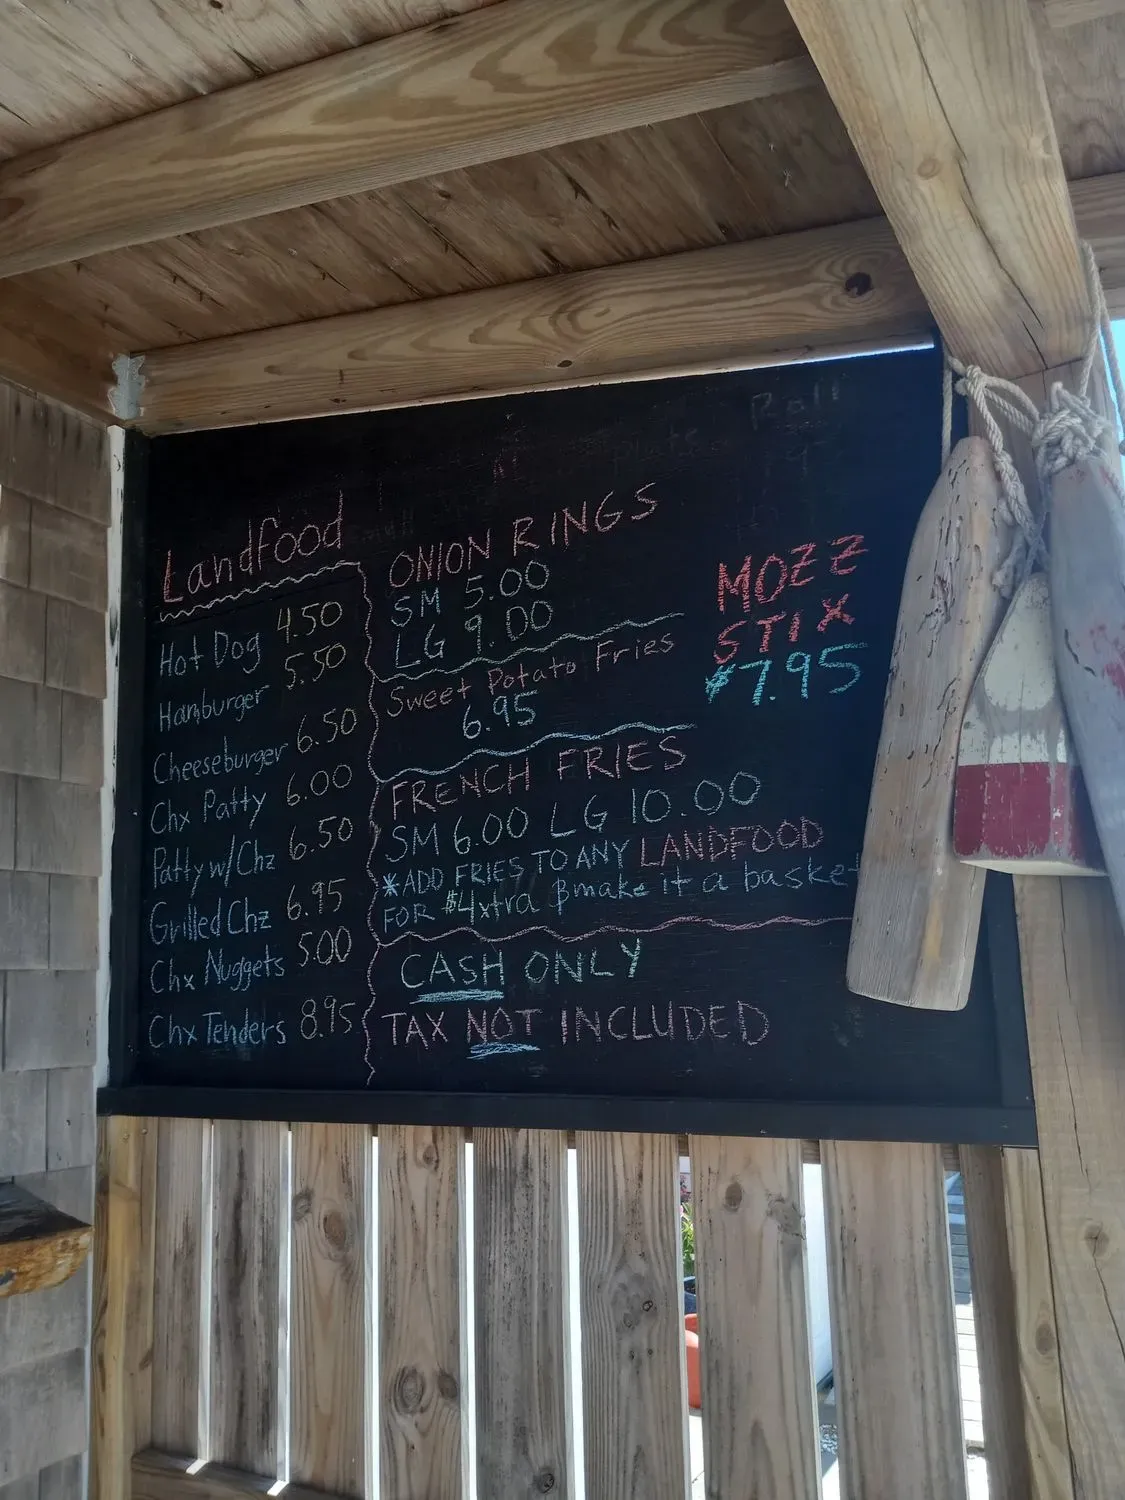 Landfood
Hot Dog 4.50
Hamburger 5.50
Cheeseburger 6.50
Chx Patty 6.00
Patty w/Chz 6.50
Grilled Chz 6.95
Chx Nuggets 5.00
Chx Tenders 8.95
ONION RINGS
SM 5.00
LG 9.00
Sweet Potato Fries
6.95
FRENCH FRIES
SM 6.00 LG 10.00
*ADD FRIES TO ANY LANDFOOD
FOR $4xtra & make it a basket
CASH ONLY
TAX NOT INCLUDED
MOZZ
STIX
$7.95
Roll
plate